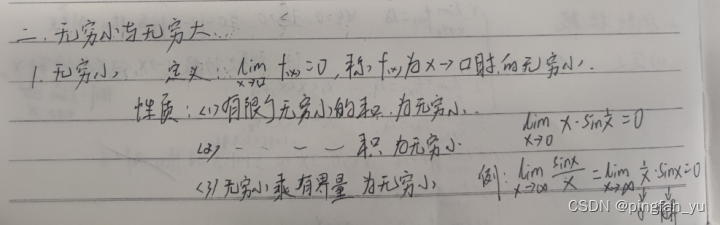 二、无穷小与无穷大...
1. 无穷小、 定义: lim x→□ f(x)=0, 称 f(x) 为 x→□时的无穷小.
性质: <1>有限个无穷小的积 为无穷小.
<2> - - - - 积 为无穷小.
lim x→0 x·sin 1/x = 0
<3>无穷小乘有界量 为无穷小
例: lim x→∞ sinx/x = lim x→∞ 1/x · sinx = 0
CSDN @pingfan_yu